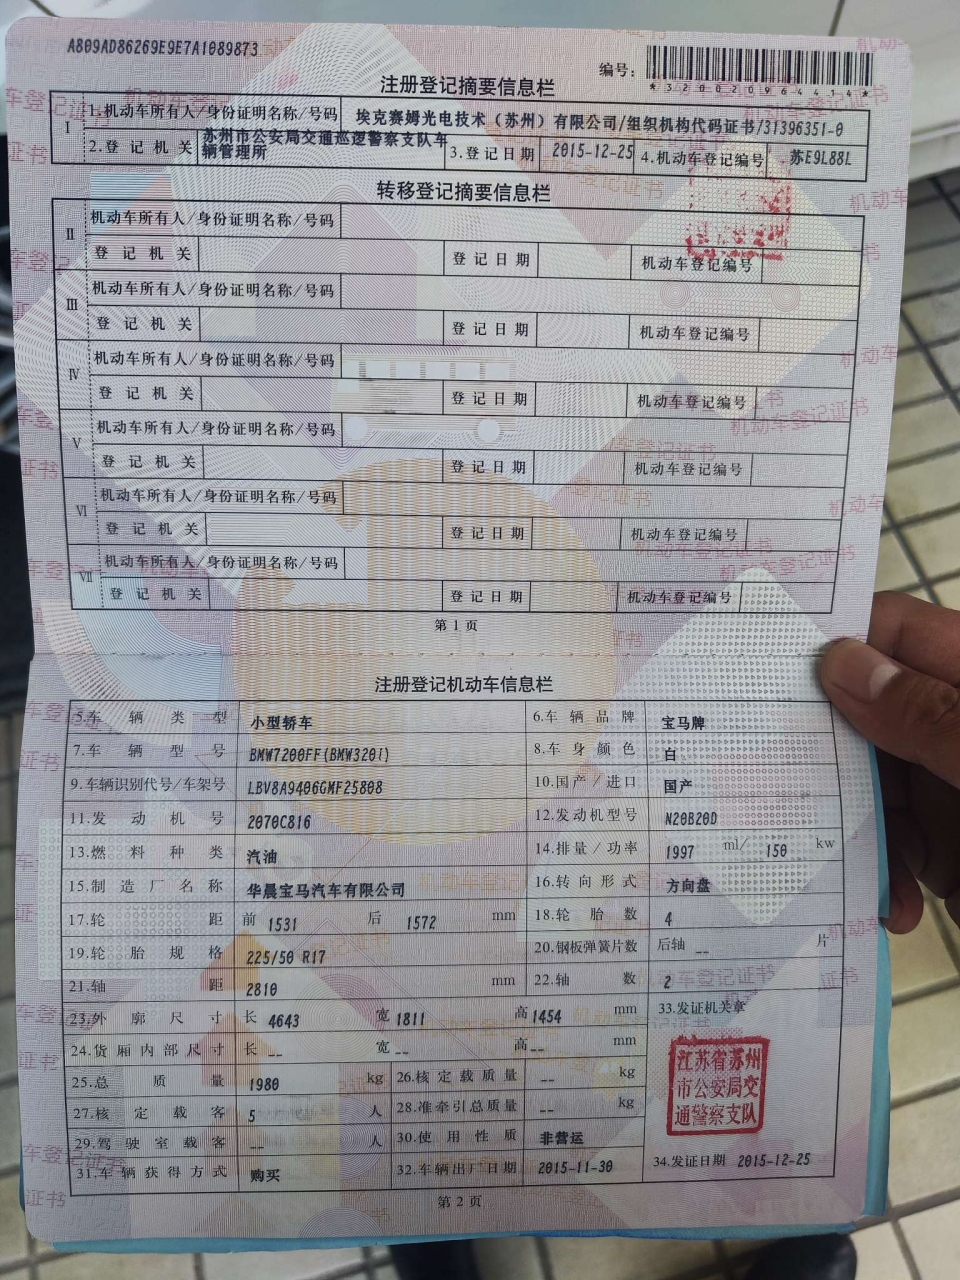 A809AD86269E9E7A1089873
编号:
*320020964414*
注册登记摘要信息栏
I
1.机动车所有人/身份证明名称/号码 埃克赛姆光电技术（苏州）有限公司/组织机构代码证书/31396351-0
2.登记机关 苏州市公安局交通巡逻警察支队车辆管理所 3.登记日期 2015-12-25 4.机动车登记编号 苏E9L88L
转移登记摘要信息栏
II 机动车所有人/身份证明名称/号码
登记机关 登记日期 机动车登记编号
III 机动车所有人/身份证明名称/号码
登记机关 登记日期 机动车登记编号
IV 机动车所有人/身份证明名称/号码
登记机关 登记日期 机动车登记编号
V 机动车所有人/身份证明名称/号码
登记机关 登记日期 机动车登记编号
VI 机动车所有人/身份证明名称/号码
登记机关 登记日期 机动车登记编号
VII 机动车所有人/身份证明名称/号码
登记机关 登记日期 机动车登记编号
第1页
注册登记机动车信息栏
5.车辆类型 小型轿车 6.车辆品牌 宝马牌
7.车辆型号 BMW7200FF(BMW320i) 8.车身颜色 白
9.车辆识别代号/车架号 LBV8A9406GMF25808 10.国产/进口 国产
11.发动机号 2070C816 12.发动机型号 N20B20D
13.燃料种类 汽油 14.排量/功率 1997 ml/ 150 kw
15.制造厂名称 华晨宝马汽车有限公司 16.转向形式 方向盘
17.轮距 前 1531 后 1572 mm 18.轮胎数 4
19.轮胎规格 225/50 R17 20.钢板弹簧片数 后轴 -- 片
21.轴距 2810 mm 22.轴数 2
23.外廓尺寸 长 4643 宽 1811 高 1454 mm 33.发证机关章
24.货厢内部尺寸 长 -- 宽 -- 高 -- mm
25.总质量 1980 kg 26.核定载质量 -- kg
27.核定载客 5 人 28.准牵引总质量 -- kg
29.驾驶室载客 -- 人 30.使用性质 非营运
31.车辆获得方式 购买 32.车辆出厂日期 2015-11-30 34.发证日期 2015-12-25
江苏省苏州
市公安局交
通警察支队
第2页